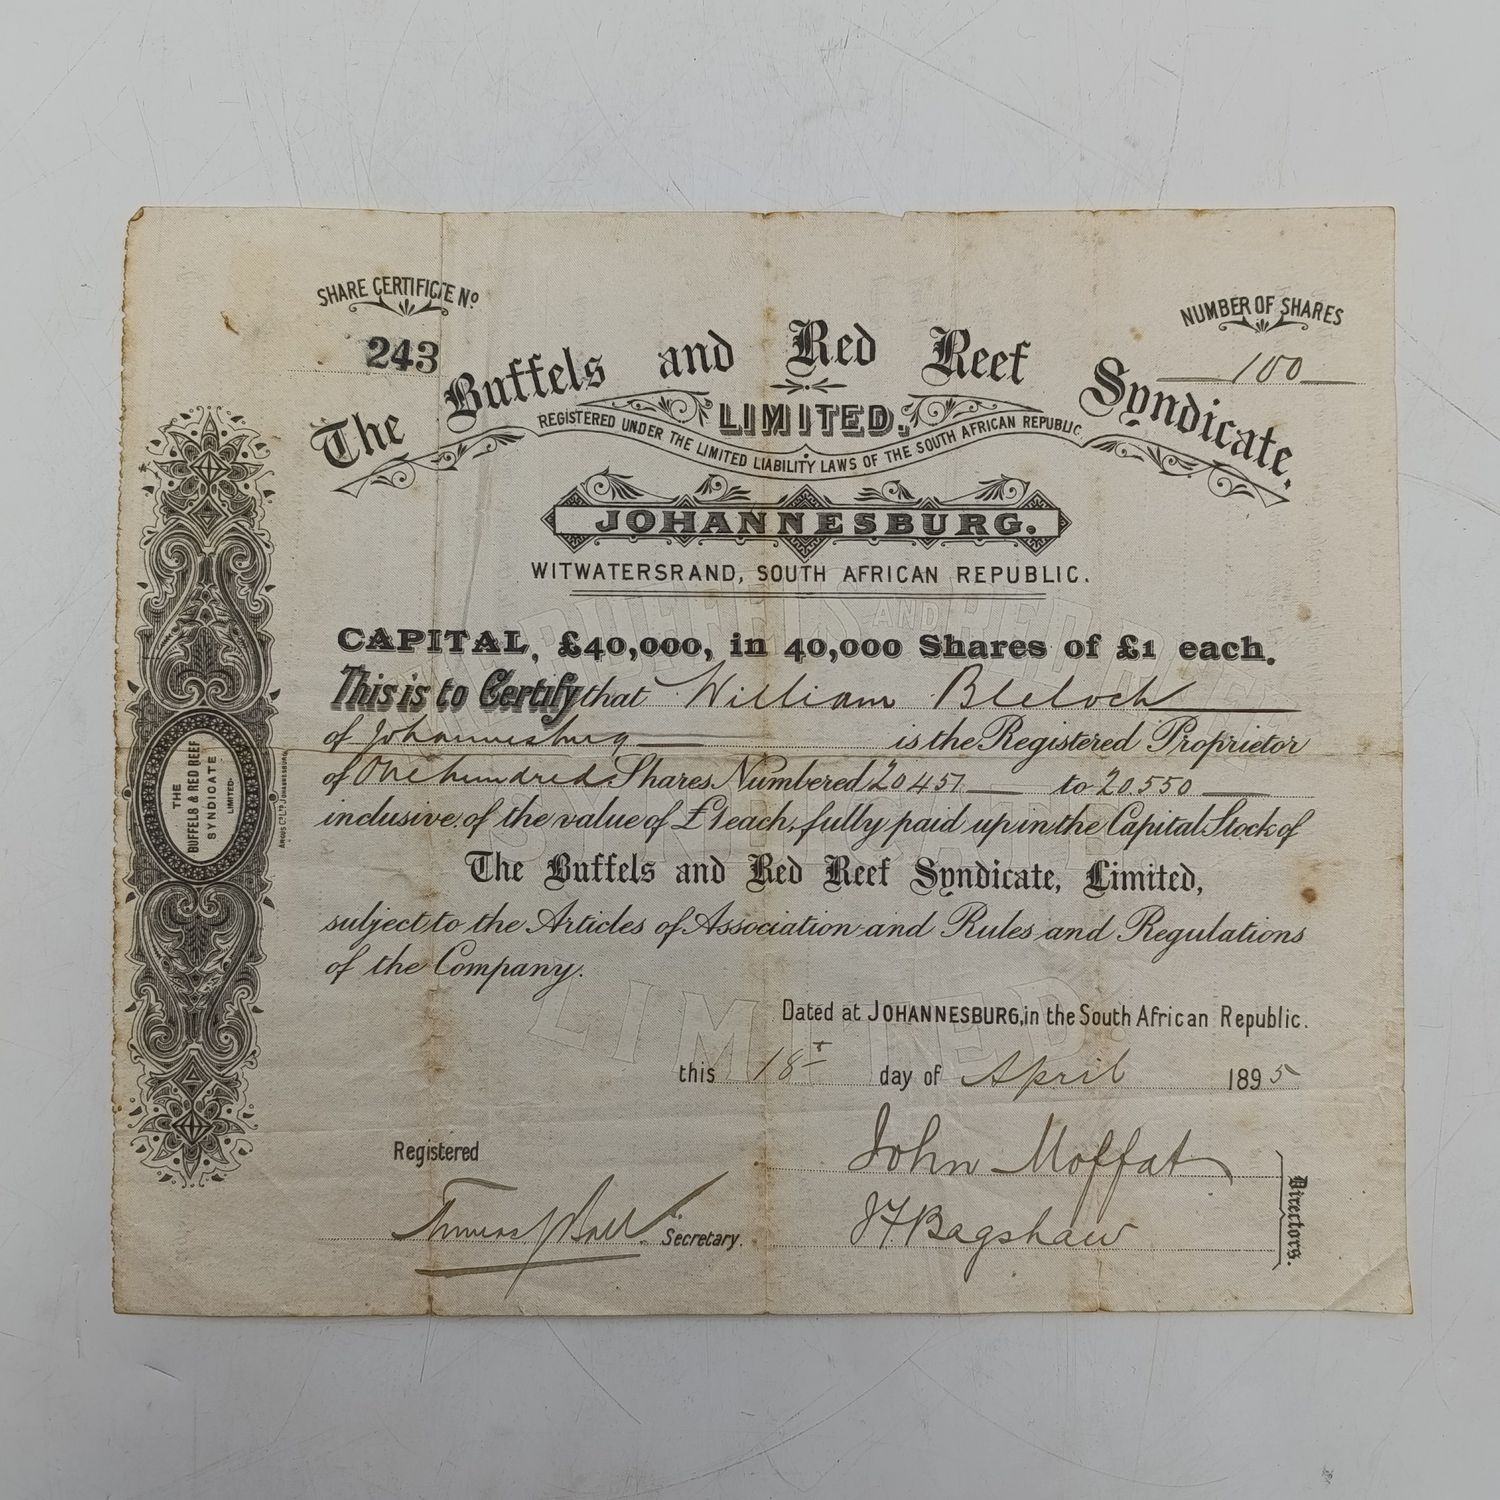 SHARE CERTIFICATE No.
243
NUMBER OF SHARES
100
The Buffels and Red Reef Syndicate,
LIMITED,
REGISTERED UNDER THE LIMITED LIABILITY LAWS OF THE SOUTH AFRICAN REPUBLIC
JOHANNESBURG.
WITWATERSRAND, SOUTH AFRICAN REPUBLIC.
CAPITAL, £40,000, in 40,000 Shares of £1 each.
This is to Certify that William Bleloch
of Johannesburg is the Registered Proprietor
of One hundred Shares Numbered 20451 to 20550
inclusive of the value of £1 each, fully paid up in the Capital Stock of
The Buffels and Red Reef Syndicate, Limited,
subject to the Articles of Association and Rules and Regulations
of the Company.
Dated at JOHANNESBURG, in the South African Republic.
this 18th day of April 1895
Registered
John Moffat
J F Bagshaw
Directors.
Thomas J Ball Secretary.
THE
BUFFELS & RED REEF
SYNDICATE
LIMITED.
BUFFELS AND RED REEF
SYNDICATE
LIMITED